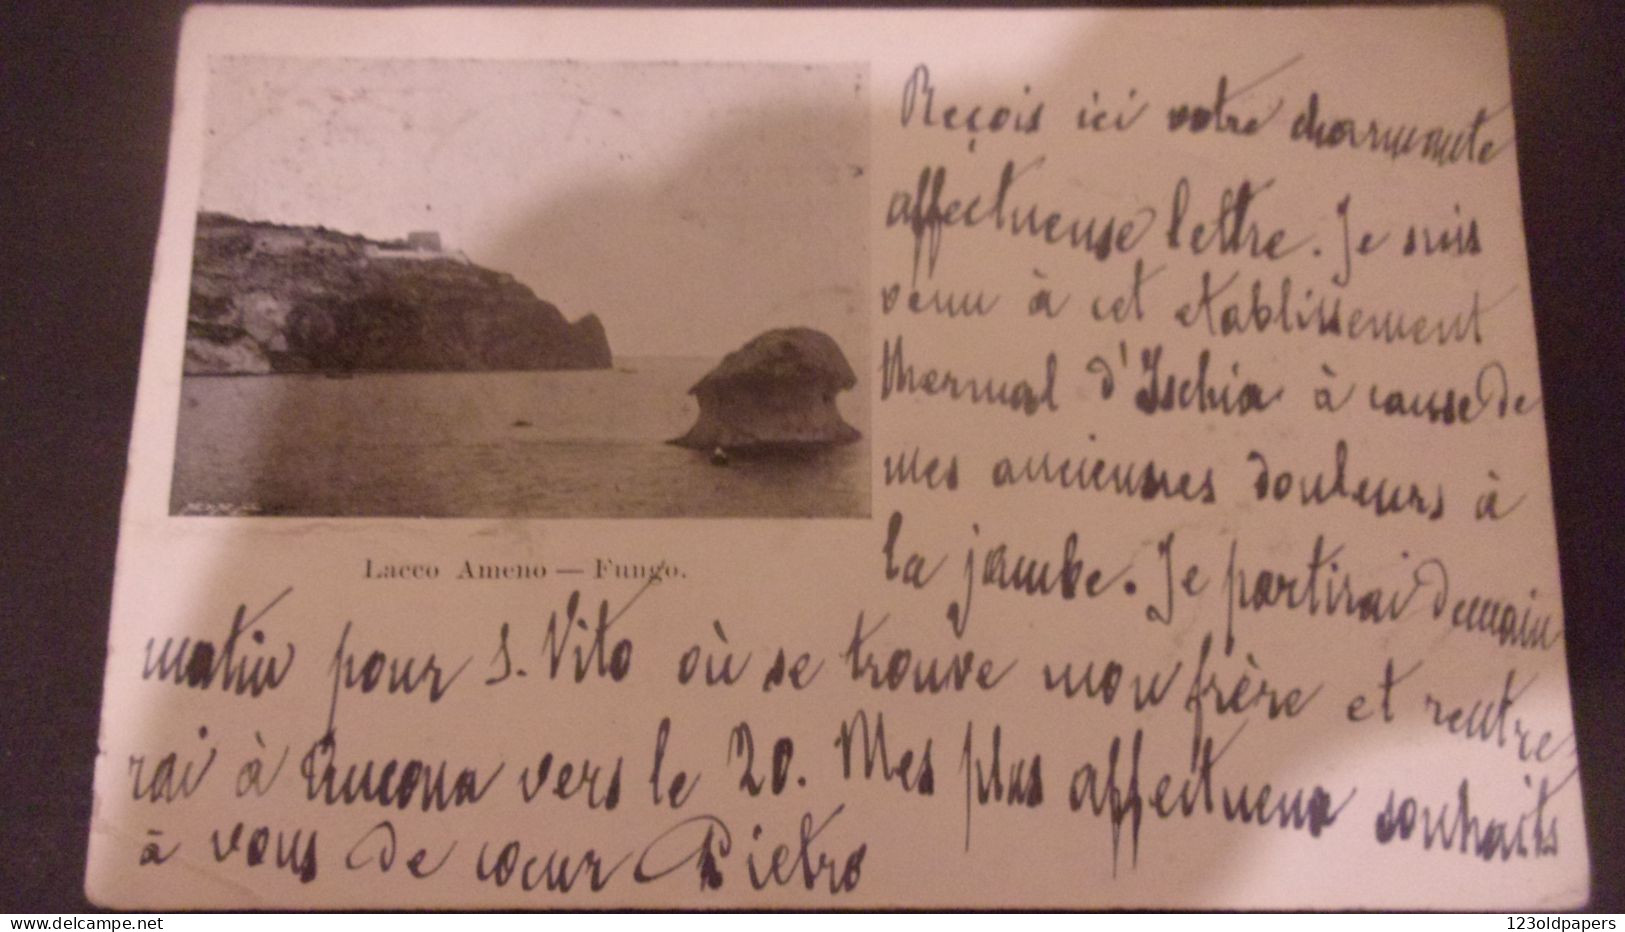 Reçois ici votre charmante
affectueuse lettre. Je suis
venu à cet etablissement
thermal d'Ischia à cause de
mes anciennes douleurs à
la jambe. Je partirai demain
Lacco Ameno — Fungo.
matin pour S. Vito où se trouve mon frère et rentre
rai à Ancona vers le 20. Mes plus affectueux souhaits
à vous de cœur Pietro
123oldpapers